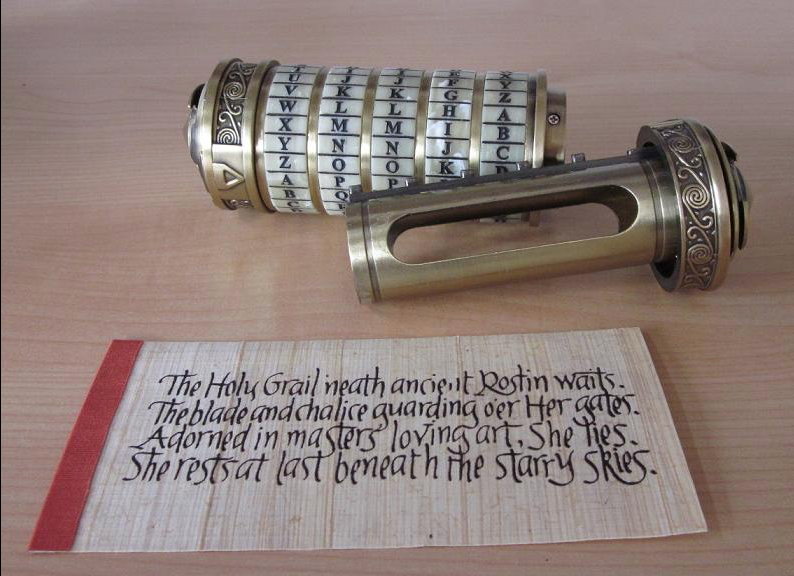 U J J F Y
V K K G Z
W L L H A
X M M I B
Y N N J C
Z O O K D
A P P
B Q
C
The Holy Grail 'neath ancient Roslin waits.
The blade and chalice guarding o'er Her gates.
Adorned in masters loving art, She lies.
She rests at last beneath the starry skies.